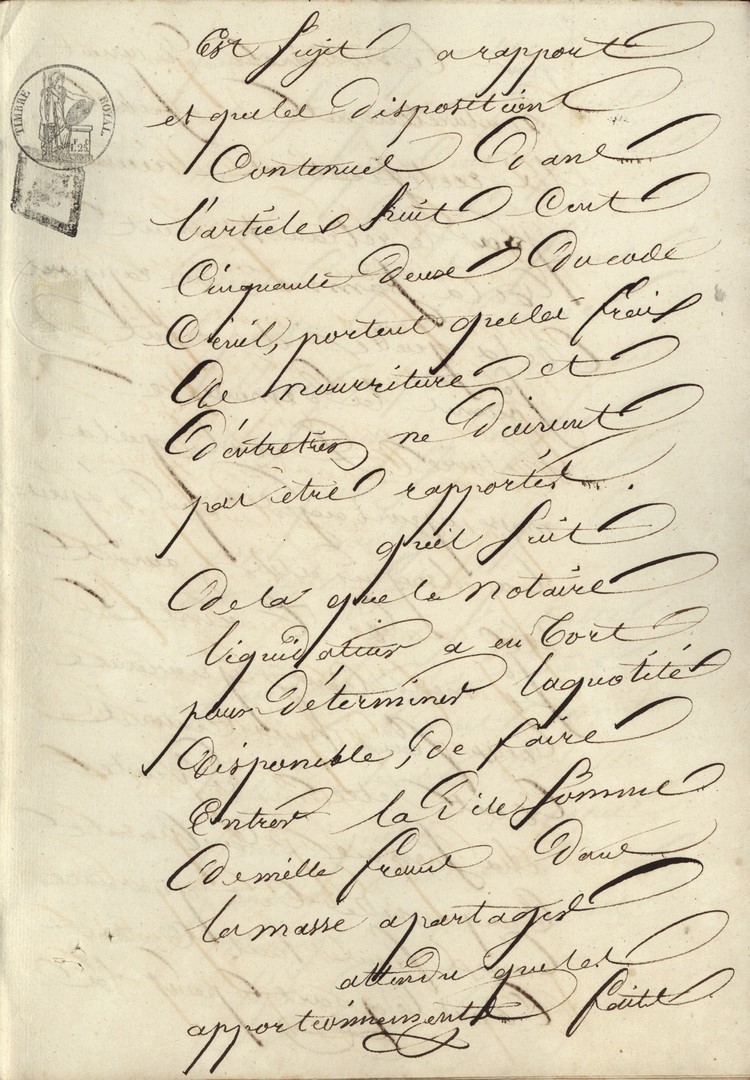 TIMBRE ROYAL
1F.25
Est sujet a rapport
et que les dispositions
Contenues Dans
l'articles huit Cent
Cinquante deux Du code
Civil, portent que les frais
De nourriture et
D'entretien ne Doivent
pas être rapportés.
qu'il suit
De la que le notaire
liquidateur a eu Tort
pour Déterminer la quotité
Disponible, De faire
Entrer la Dite somme
De mille francs Dans
la masse a partager
attendu que les
apportionnements faits